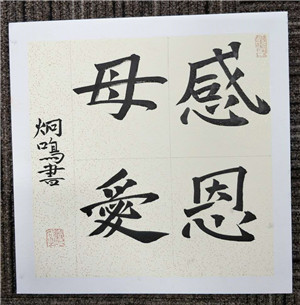 感恩
母愛
炯鳴書